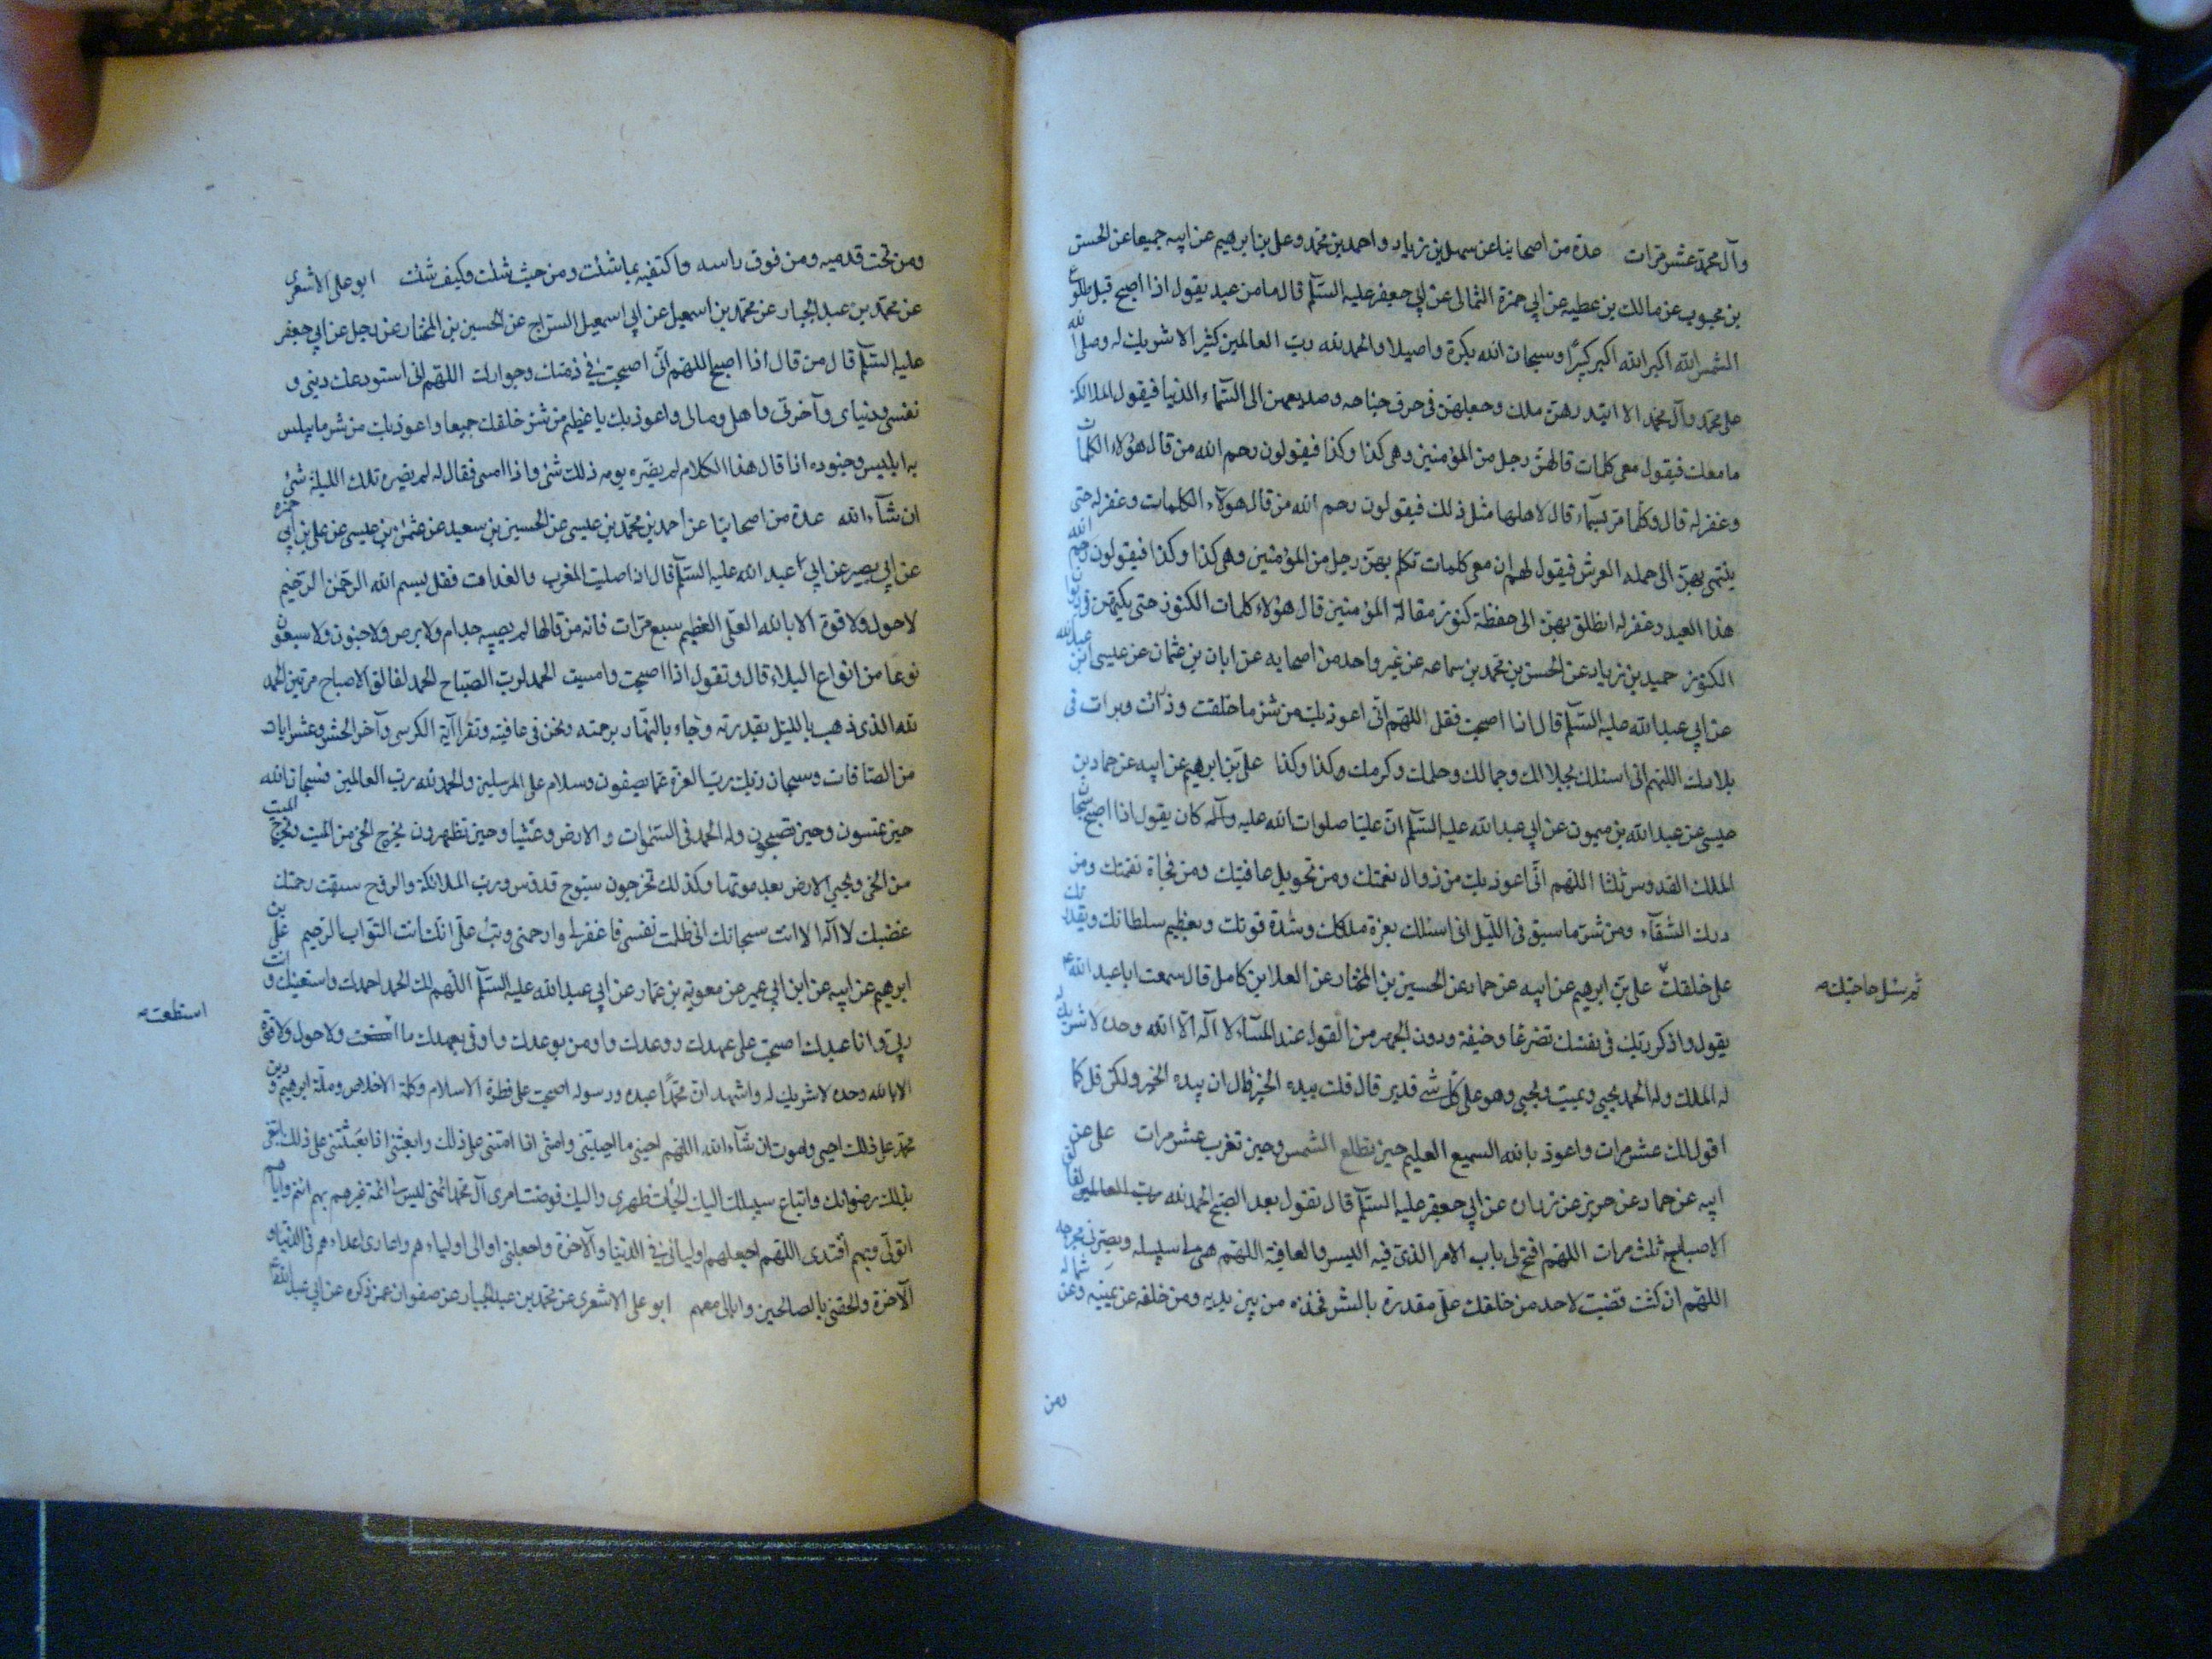 وآل محمد عشر مرات عدة من اصحابنا عن سهل بن زياد واحمد بن محمد وعلى بن ابرهيم عن ابيه جميعا عن الحسن
بن محبوب عن مالك بن عطيه عن ابي حمزة الثمالى عن ابي جعفر عليه السّلم قال ما من عبد يقول اذا اصبح قبل طلوع
الشمس الله اكبر الله اكبر كبيرًا وسبحان الله بكرة واصيلا والحمد لله ربّ العالمين كثيرا لا شريك له وصلى الله
على محمد وآل محمد الا ابتدرهنّ ملك وجعلهنّ فى جوف جناحه وصعد بهن الى السّماء الدنيا فيقول الملائكة
ما معك فيقول معى كلمات قالهنّ رجل من المؤمنين وهى كذا وكذا فيقولون رحم الله من قال هؤلاء الكلمات
وغفر له قال وكلّما مرّ بسماء قال لاهلها مثل ذلك فيقولون رحم الله من قال هؤلاء الكلمات وغفر له حتى
ينتهى بهنّ الى حملة العرش فيقول لهم ان معى كلمات تكلم بهنّ رجل من المؤمنين وهى كذا وكذا فيقولون رحم الله
هذا العبد وغفر له انطلق بهن الى حفظة كنوز مقالة المؤمنين قال هؤلاء كلمات الكنوز حتى يكتبهن فى ديوان
الكنوز حميد بن زياد عن الحسن بن محمد بن سماعه عن غير واحد من اصحابه عن ابان بن عثمان عن عيسى ابن عبد الله
عن ابي عبد الله عليه السّلم قال اذا اصبحت فقل اللهم انّى اعوذ بك من شرّ ما خلقت وذرأت وبرأت فى
بلادك اللهم انى اسئلك بجلالك وجمالك وحلمك وكرمك وكذا وكذا علىّ بن ابرهيم عن ابيه عن حماد بن
عيسى عن عبد الله بن ميمون عن ابي عبد الله عليه السّلم انّ عليّا صلوات الله عليه وآله كان يقول اذا اصبح سبحان
الملك القدوس ثلثا اللهم انّى اعوذ بك من زوال نعمتك ومن تحويل عافيتك ومن فجأة نقمتك ومن
درك الشقآء ومن شرّ ما سبق فى اللّيل انى اسئلك بعزة ملكك وشدّة قوتك وبعظيم سلطانك وبقدرتك
على خلقك علىّ بن ابرهيم عن ابيه عن حماد عن الحسين بن المختار عن العلا بن كامل قال سمعت ابا عبد الله ع
ثم سئل حاجتك
يقول واذكر ربّك فى نفسك تضرعًا وخيفة ودون الجهر من القول عند المسآء لا اله الّا الله وحده لا شريك له
له الملك وله الحمد يحيي ويميت ويحيي وهو على كلّ شئ قدير قال قلت بيده الخير قال ان بيده الخير ولكن قل كما
اقول لك عشر مرات واعوذ بالله السميع العليم حين تطلع الشمس وحين تغرب عشر مرات على عن
ابيه عن حماد عن حريز عن زراره عن ابي جعفر عليه السّلم قال تقول بعد الصّبح الحمد لله رب العالمين لفالق
الاصباح ثلث مرات اللهم افتح لى باب الامر الذى فيه اليسر والعافية اللهم هئ لى سبيله وبصّرنى مخرجه
اللهم ان كنت قضيت لاحد من خلقك علىّ مقدرة بالشر فخذه من بين يديه ومن خلفه عن يمينه وعن شماله
ومن
ومن تحت قدميه ومن فوق راسه واكفنيه بما شئت ومن حيث شئت وكيف شئت ابو على الاشعرى
عن محمد بن عبد الجبار عن محمد بن اسمعيل عن ابي اسمعيل السراج عن الحسين بن المختار عن رجل عن ابي جعفر
عليه السّلم قال من قال اذا اصبح اللهم انّى اصبحت فى ذمتك وجوارك اللهم انى استودعك دينى و
نفسى ودنياى وآخرتى واهلى ومالى واعوذ بك يا عظيم من شرّ خلقك جميعا واعوذ بك من شر ما يبلس
به ابليس وجنوده اذا قال هذا الكلام لم يضرّه يومه ذلك شئ واذا امسى فقال له لم يضره تلك الليلة شئ
ان شآء الله عدة من اصحابنا عن احمد بن محمد بن عيسى عن الحسين بن سعيد عن عثمن بن عيسى عن على بن ابي حمزه
عن ابي بصير عن ابي عبد الله عليه السّلم قال اذا صليت المغرب والغداة فقل بسم الله الرّحمن الرّحيم
لا حول ولا قوة الا بالله العلى العظيم سبع مرّات فانه من قالها لم يصبه جذام ولا برص ولا جنون ولا سبعون
نوعًا من انواع البلاء قال وتقول اذا اصبحت وامسيت الحمد لربّ الصّباح الحمد لفالق الاصباح مرتين الحمد
لله الذى ذهب بالليل بقدرته وجاء بالنهار برحمته ونحن فى عافيته وتقرا آية الكرسى وآخر الحشر وعشر ايات
من الصافات وسبحان ربّك ربّ العزة عمّا يصفون وسلام على المرسلين والحمد لله ربّ العالمين فسبحان الله
حين تمسون وحين تصبحون وله الحمد فى السّموات والارض وعشيا وحين تظهرون يخرج الحىّ من الميت ويخرج الميت
من الحى ويحيي الارض بعد موتها وكذلك تخرجون سبّوح قدّوس ربّ الملائكة والروح سبقت رحمتك
غضبك لا اله الا انت سبحانك انى ظلمت نفسى فاغفر لى وارحمنى وتب علىّ انك انت التوّاب الرحيم علىّ بن
ابرهيم عن ابيه عن ابن ابي عمير عن معوية بن عمار عن ابي عبد الله عليه السّلم اللهم لك الحمد احمدك واستعينك وانت
ربّى وانا عبدك اصبحت على عهدك ووعدك واومن بوعدك واوفى بعهدك ما ولا حول ولا قوة
استطعت
الا بالله وحده لا شريك له واشهد انّ محمدًا عبده ورسوله اصبحت على فطرة الاسلام وكلمة الاخلاص وملّة ابرهيم ودين
محمد على ذلك احيى واموت ان شآء الله اللهم احينى ما احييتنى وامتنى اذا امتّنى على ذلك وابعثنى اذا بعثتنى على ذلك ابتغى
بذلك رضوانك واتباع سبيلك اليك الجأت ظهرى واليك فوضت امرى آل محمد ائمتى ليس لى ائمة غيرهم بهم ائتم واياهم
اتولّى وبهم اقتدى اللهم اجعلهم اوليائى فى الدنيا والآخرة واجعلنى اوالى اولياءهم واعادى اعداءهم فى الدنيا و
الآخرة والحقنى بالصالحين وابائى معهم ابو على الاشعرى عن محمد بن عبد الجبار عن صفوان عمن ذكره عن ابي عبد الله ع